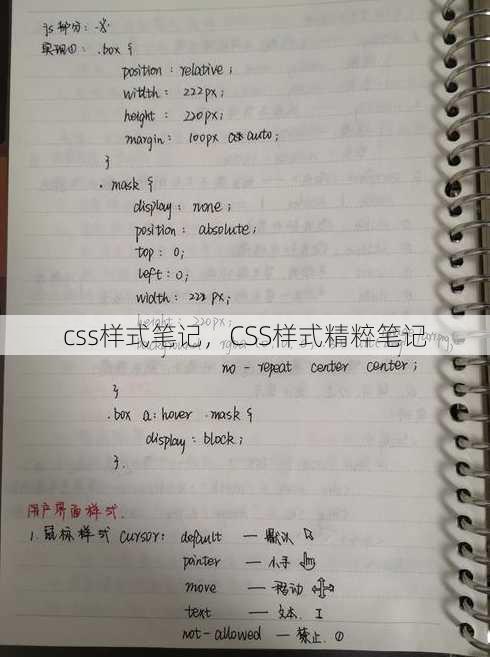 js部分:
实现①: .box {
position: relative;
width: 222px;
height: 220px;
margin: 100px auto;
}
.mask {
display: none;
position: absolute;
top: 0;
left: 0;
width: 222px;
height: 220px;
css样式笔记，CSS样式精粹笔记
no-repeat center center;
}
.box a:hover .mask {
display: block;
}.
用户界面样式.
1. 鼠标样式 cursor: default — 默认
pointer — 小手
move — 移动
text — 文本. I
not-allowed — 禁止.